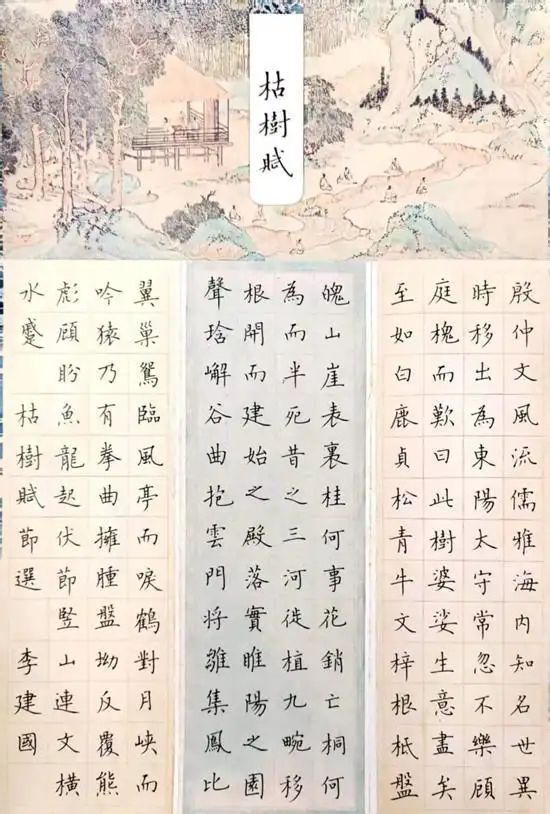 枯樹賦
殷仲文風流儒雅海内知名世異
時移出為東陽太守常忽不樂顧
庭槐而歎曰此樹婆娑生意盡矣
至如白鹿貞松青牛文梓根柢盤
魄山崖表裏桂何事花銷亡桐何
為而半死昔之三河徙植九畹移
根開而建始之殿落實睢陽之園
聲嶰谷曲抱雲門将雛集鳳比
翼巢鴛臨風亭而唳鶴對月峽而
吟猿乃有拳曲擁腫盤坳反覆熊
彪顧盼魚龍起伏節竪山連文横
水蹙 枯樹賦節選 李建國